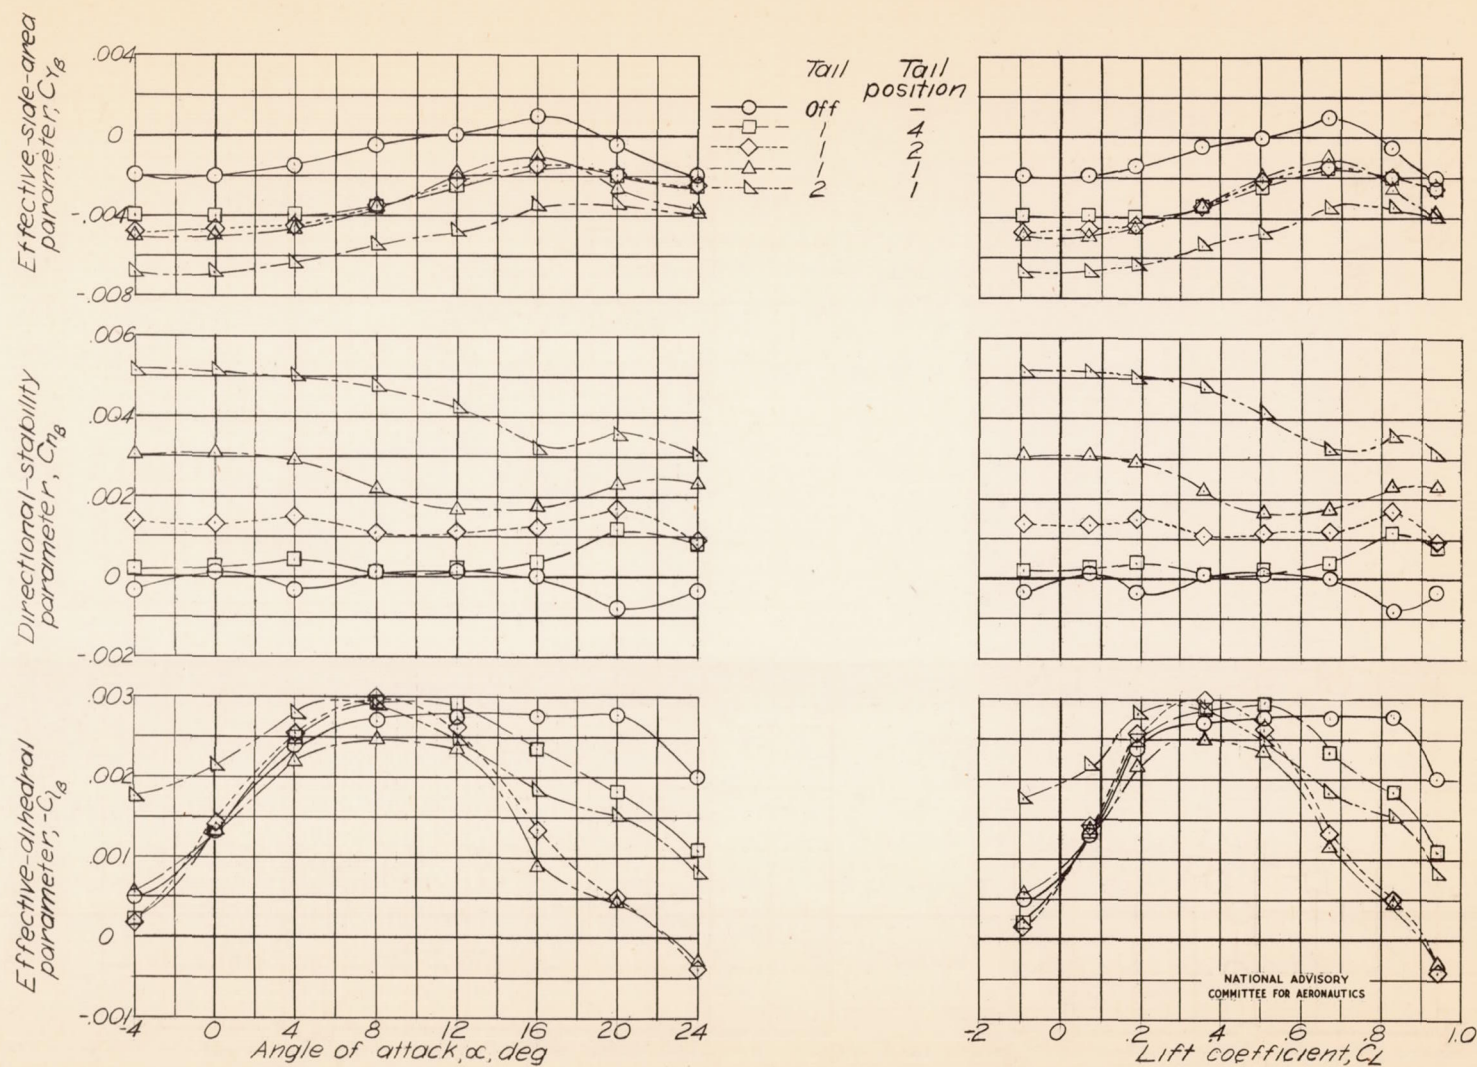 Effective-side-area
parameter, CYβ
.004
0
-.004
-.008
Tail Tail
position
Off –
1 4
1 2
1 1
2 1
Directional-stability
parameter, Cnβ
.006
.004
.002
0
-.002
Effective-dihedral
parameter, -Clβ
.003
.002
.001
0
-.001
-4 0 4 8 12 16 20 24
Angle of attack, α, deg
NATIONAL ADVISORY
COMMITTEE FOR AERONAUTICS
-.2 0 .2 .4 .6 .8 1.0
Lift coefficient, CL